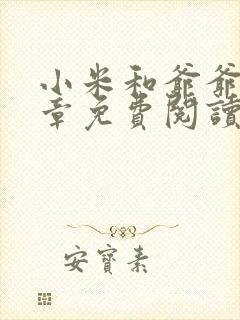 小米和爺爺
章免費閱讀
安寶素